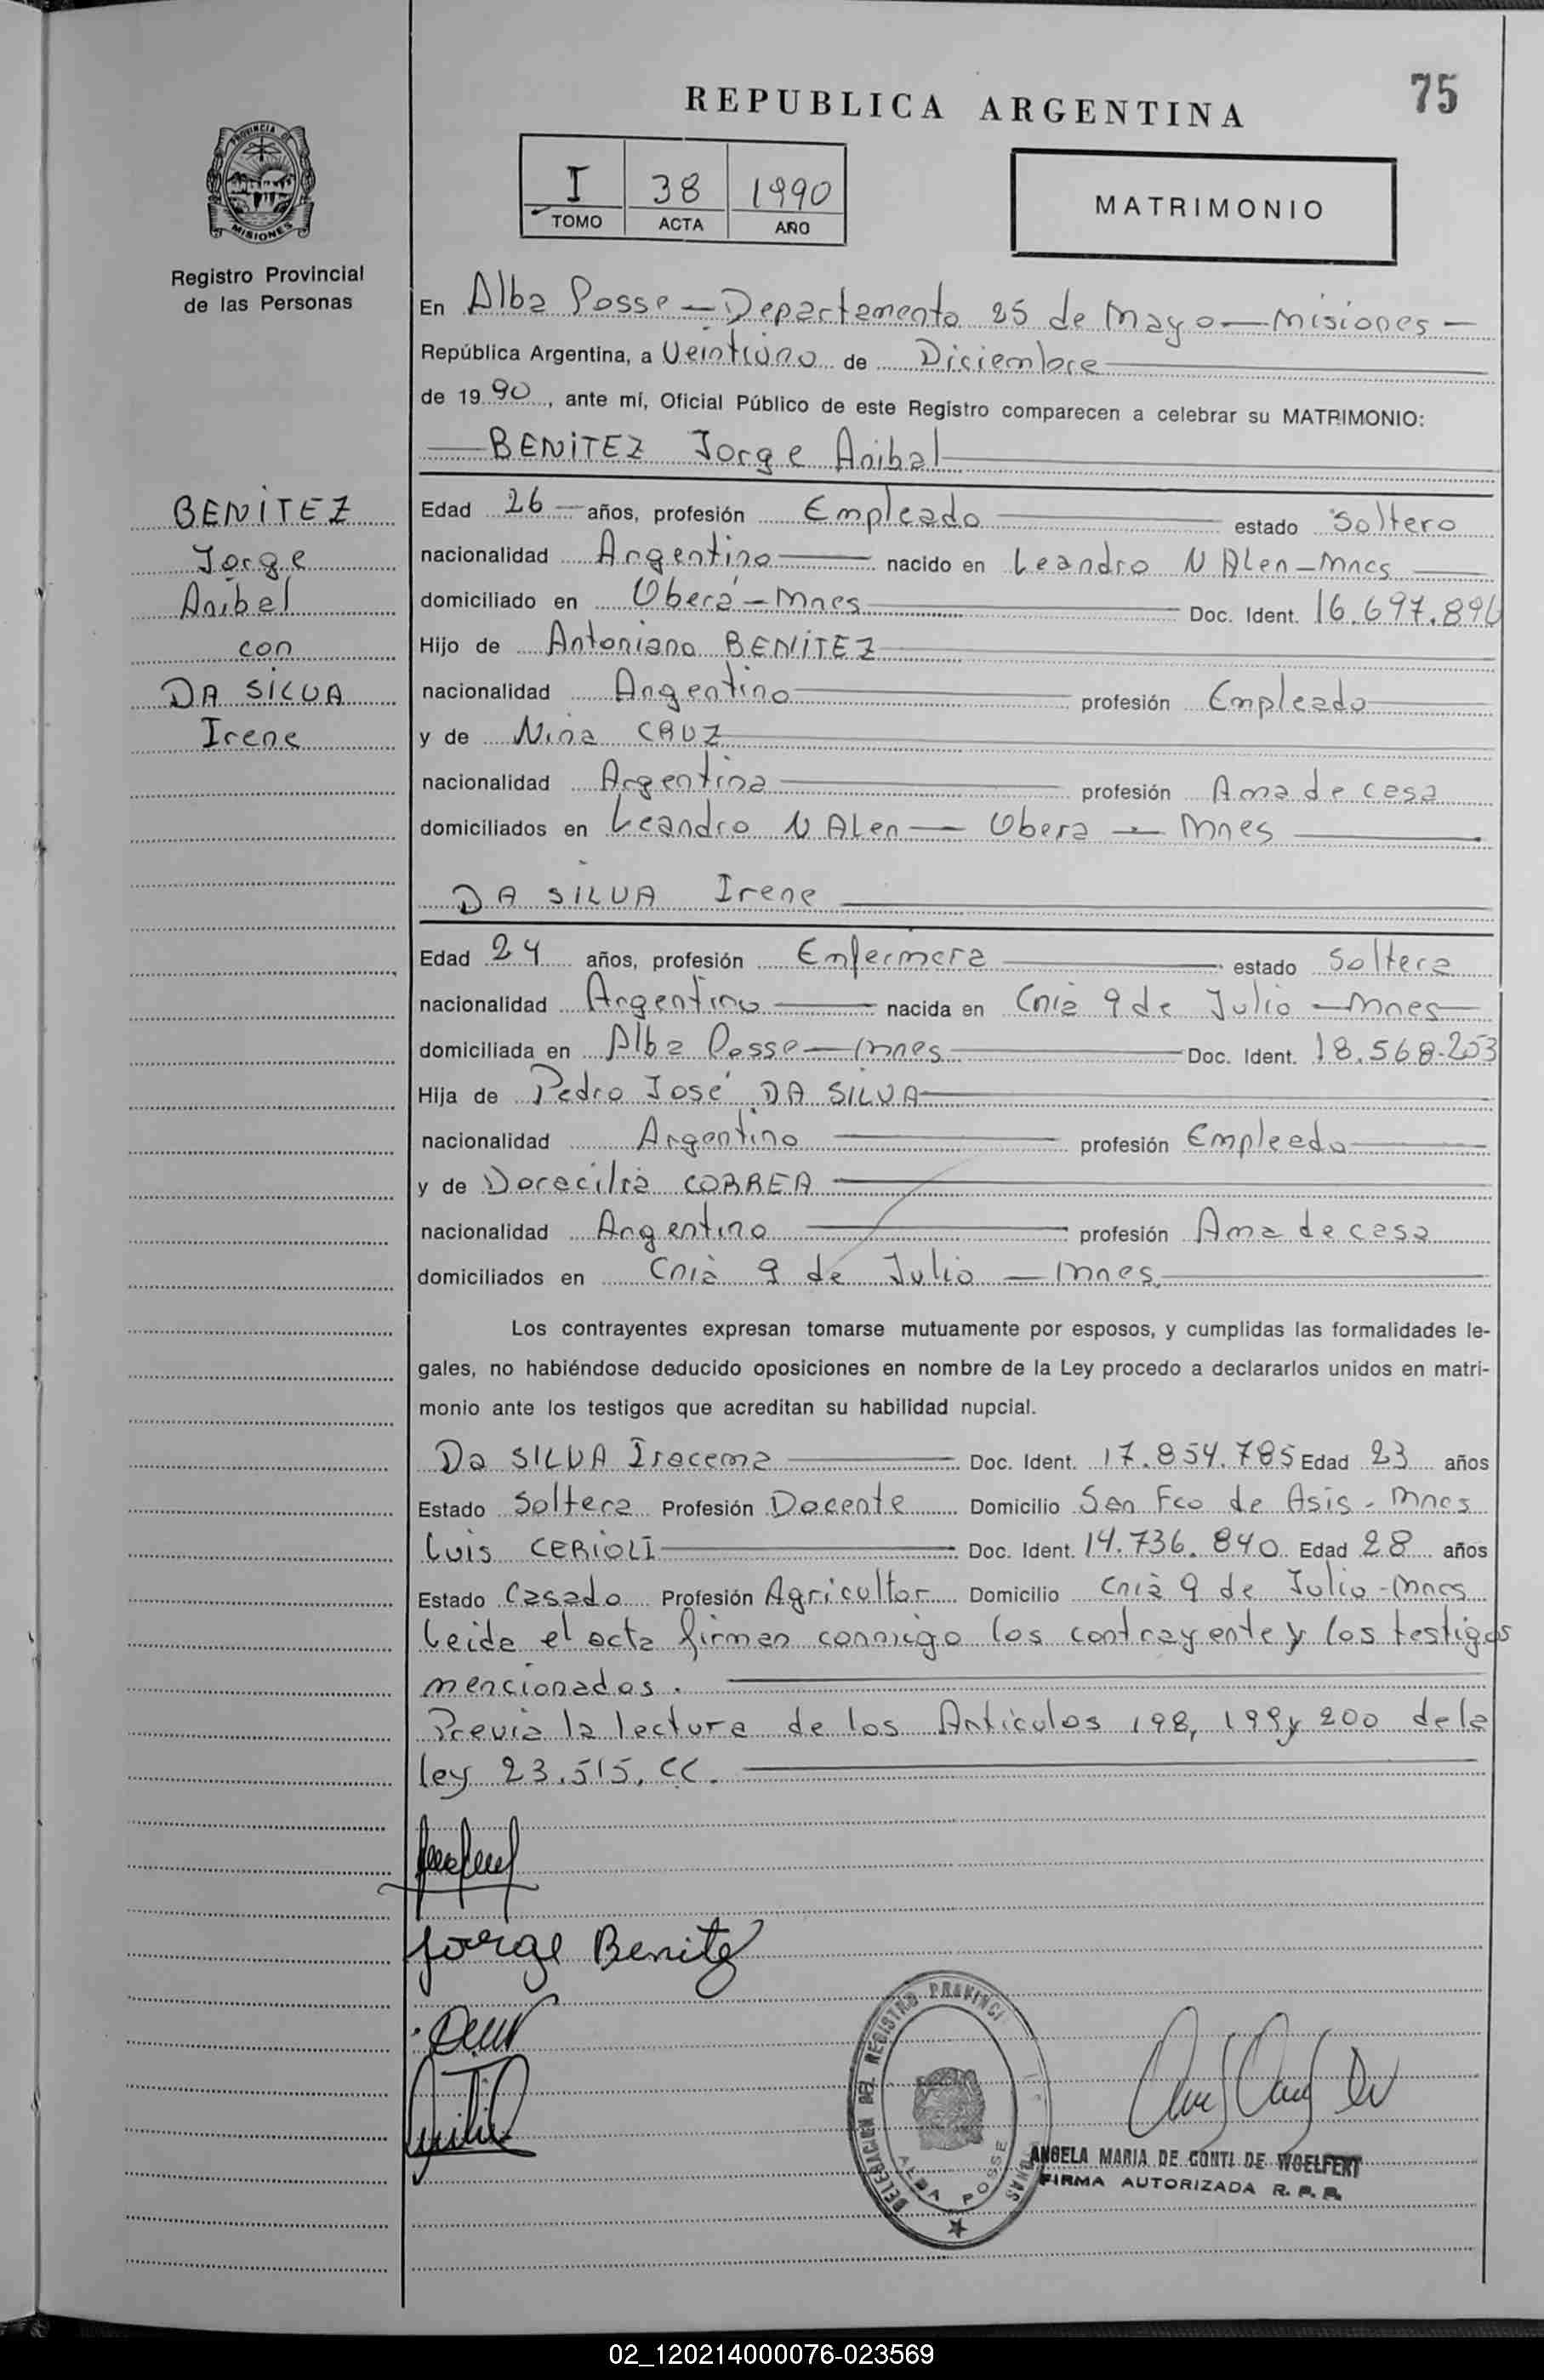 75
REPUBLICA ARGENTINA
I 38 1990
TOMO ACTA AÑO
MATRIMONIO
PROVINCIA DE
MISIONES
Registro Provincial
de las Personas
En Alba Posse - Departamento 25 de Mayo - Misiones -
República Argentina, a Veintiuno de Diciembre
de 19 90, ante mí, Oficial Público de este Registro comparecen a celebrar su MATRIMONIO:
BENITEZ Jorge Anibal
BENITEZ
Jorge
Anibal
con
DA SILVA
Irene
Edad 26 años, profesión Empleado estado Soltero
nacionalidad Argentino nacido en Leandro N Alen - Mnes
domiciliado en Oberá - Mnes Doc. Ident. 16.697.896
Hijo de Antoniano BENITEZ
nacionalidad Argentino profesión Empleado
y de Nina CRUZ
nacionalidad Argentina profesión Ama de casa
domiciliados en Leandro N Alen - Obera - Mnes
DA SILVA Irene
Edad 24 años, profesión Enfermera estado Soltera
nacionalidad Argentino nacida en Cnia 9 de Julio - Mnes
domiciliada en Alba Posse - Mnes Doc. Ident. 18.568.253
Hija de Pedro José DA SILVA
nacionalidad Argentino profesión Empleado
y de Doracilia CORREA
nacionalidad Argentino profesión Ama de casa
domiciliados en Cnia 9 de Julio - Mnes.
Los contrayentes expresan tomarse mutuamente por esposos, y cumplidas las formalidades le-
gales, no habiéndose deducido oposiciones en nombre de la Ley procedo a declararlos unidos en matri-
monio ante los testigos que acreditan su habilidad nupcial.
Da SILVA Iracema Doc. Ident. 17.854.785 Edad 23 años
Estado Soltera Profesión Docente Domicilio San Fco de Asis - Mnes
Luis CERIOLI Doc. Ident. 14.736.840 Edad 28 años
Estado Casado Profesión Agricultor Domicilio Cnia 9 de Julio - Mnes
Leida el acta firman conmigo los contrayente y los testigos
mencionados.
Previa la lectura de los Articulos 198, 199 y 200 de la
ley 23.515. CC.
Jorge Benitez
DELEGACION DEL REGISTRO PROVINCI
ALBA POSSE
ANGELA MARIA DE CONTI DE WOELFERT
FIRMA AUTORIZADA R. P. P.
02_120214000076-023569